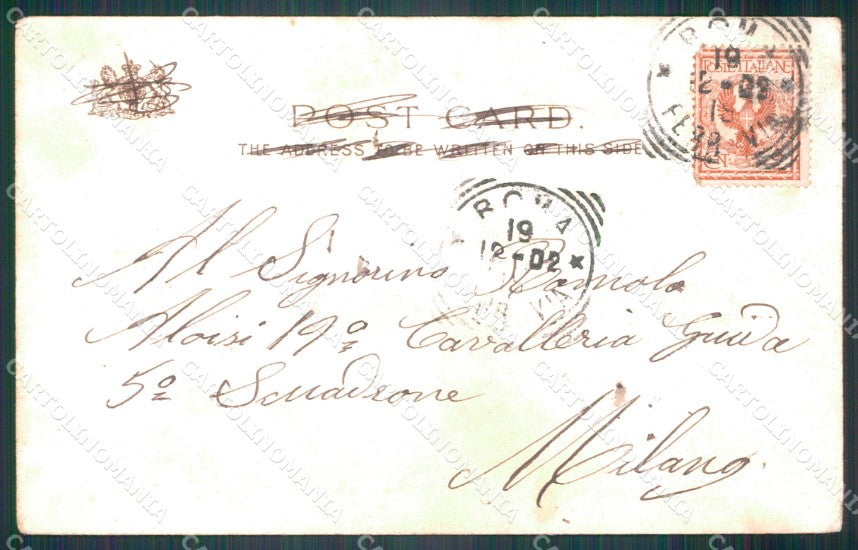 POST CARD.
THE ADDRESS TO BE WRITTEN ON THIS SIDE
POSTE ITALIANE
ROMA
19
12-02
FERROVIA
ROMA
19
12-02
Al Signorino Romolo
Aloisi 19º Cavalleria Guida
5º Squadrone
Milano
CARTOLINOMANIA